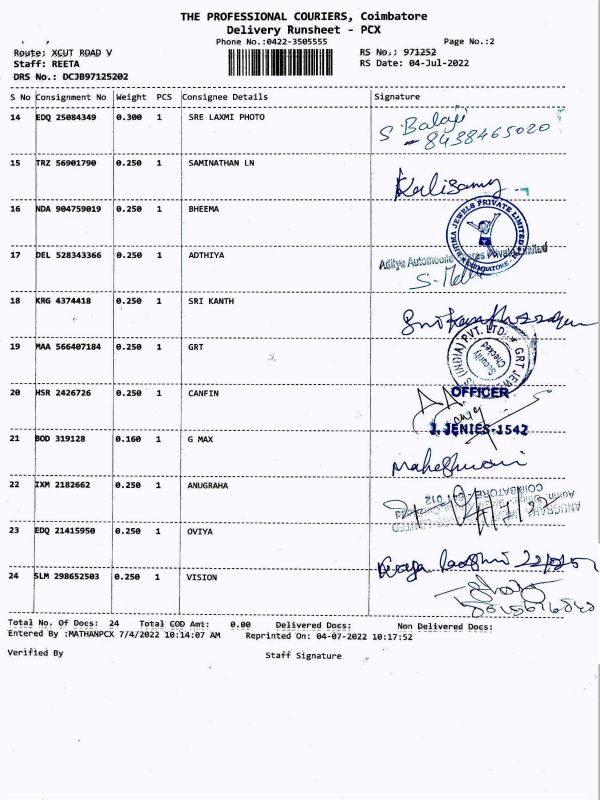 THE PROFESSIONAL COURIERS, Coimbatore
Delivery Runsheet - PCX
Phone No.:0422-3505555 Page No.:2
Route: XCUT ROAD V RS No.: 971252
Staff: REETA RS Date: 04-Jul-2022
DRS No.: DCJB97125202
S No Consignment No Weight PCS Consignee Details Signature
14 EDQ 25084349 0.300 1 SRE LAXMI PHOTO
S Balaji
8438465020
15 TRZ 56901790 0.250 1 SAMINATHAN LN
Kalisamy
16 NDA 904759019 0.250 1 BHEEMA
BHIMA JEWELS PRIVATE LIMITED
COIMBATORE
17 DEL 528343366 0.250 1 ADTHIYA
Aditya Automobile Spares Private Limited
18 KRG 4374418 0.250 1 SRI KANTH
19 MAA 566407184 0.250 1 GRT
GRT JEWELLERS (INDIA) PVT. LTD.
Security
Checked
20 HSR 2426726 0.250 1 CANFIN
OFFICER
J. JENIES-1542
21 BOD 319128 0.160 1 G MAX
Maheshwari
22 IXM 2182662 0.250 1 ANUGRAHA
23 EDQ 21415950 0.250 1 OVIYA
24 SLM 298652503 0.250 1 VISION
Total No. Of Docs: 24 Total COD Amt: 0.00 Delivered Docs: Non Delivered Docs:
Entered By :MATHANPCX 7/4/2022 10:14:07 AM Reprinted On: 04-07-2022 10:17:52
Verified By Staff Signature